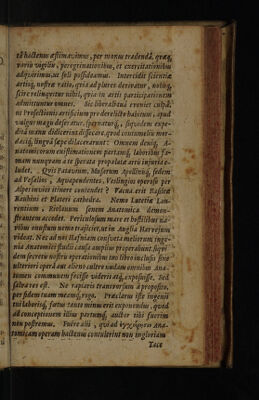 tò hactenus æstimavimus, per manus tradendâ, quæq,
variis vigiliis, peregrinationibus, et exercitationibus
adquirimus, ut soli possideamus. Intercidit scientiæ
artisq, nostræ ratio, quia ad plures derivatur, nobisq,
scire relinquitur nihil, quia in artis participationem
admittuntur omnes. Sic liberalitatis eveniet culpâ,
ut Professionis artificium pro derelicto habitum, apud
vulgus magis deseratur, spernaturq, siquidem expe-
ditâ manu didicerint dissecare, quod contumeliis mor-
dacisq, linguâ sæpe dilacerarunt. Omnem deniq, A-
natomicorum existimationem partamq, laboribus fa-
mam nunquam a te sperata propalatæ artis injuria e-
ludet. Quis Patavinum, Musarum Apollinisq, sedem
ad Vesalios, Aquapendentes, Veslingios operose per
Alpes invios itinere contendet? Vacua erit Basilea
Bauhini et Plateri cathedra. Nemo Lutetiæ Lau-
rentium, Riolanum senem Anatomica demon-
strantem accedet. Periculosum mare et hostilibus na-
vibus onustum nemo trajiciet, ut in Anglia Harvejum
videat. Nec ad nos Hafniam confueta meliorum inge-
nia Anatomici studii causa amplius properabunt, siqui-
dem secretæ nostræ operationis uno libro inclusis sine
ulteriori operâ aut alieni cultro nudam omnibus Ana-
tomen communem fecisse videris atq, exposuisse. Sed
salva res est. Ne rapiaris transversum à proposito,
per fidem tuam meamq, rogo. Præclarus iste ingenii
tui laborisq, fœtus tanto minus erit exponendus, quod
ad conceptionem illius partumq, auctor tibi fuerim
non postremus. Fuere alii, qui ad ἐγχείρησιν Ana-
tomicam operam hactenus contulerint non ingloriam
Tace